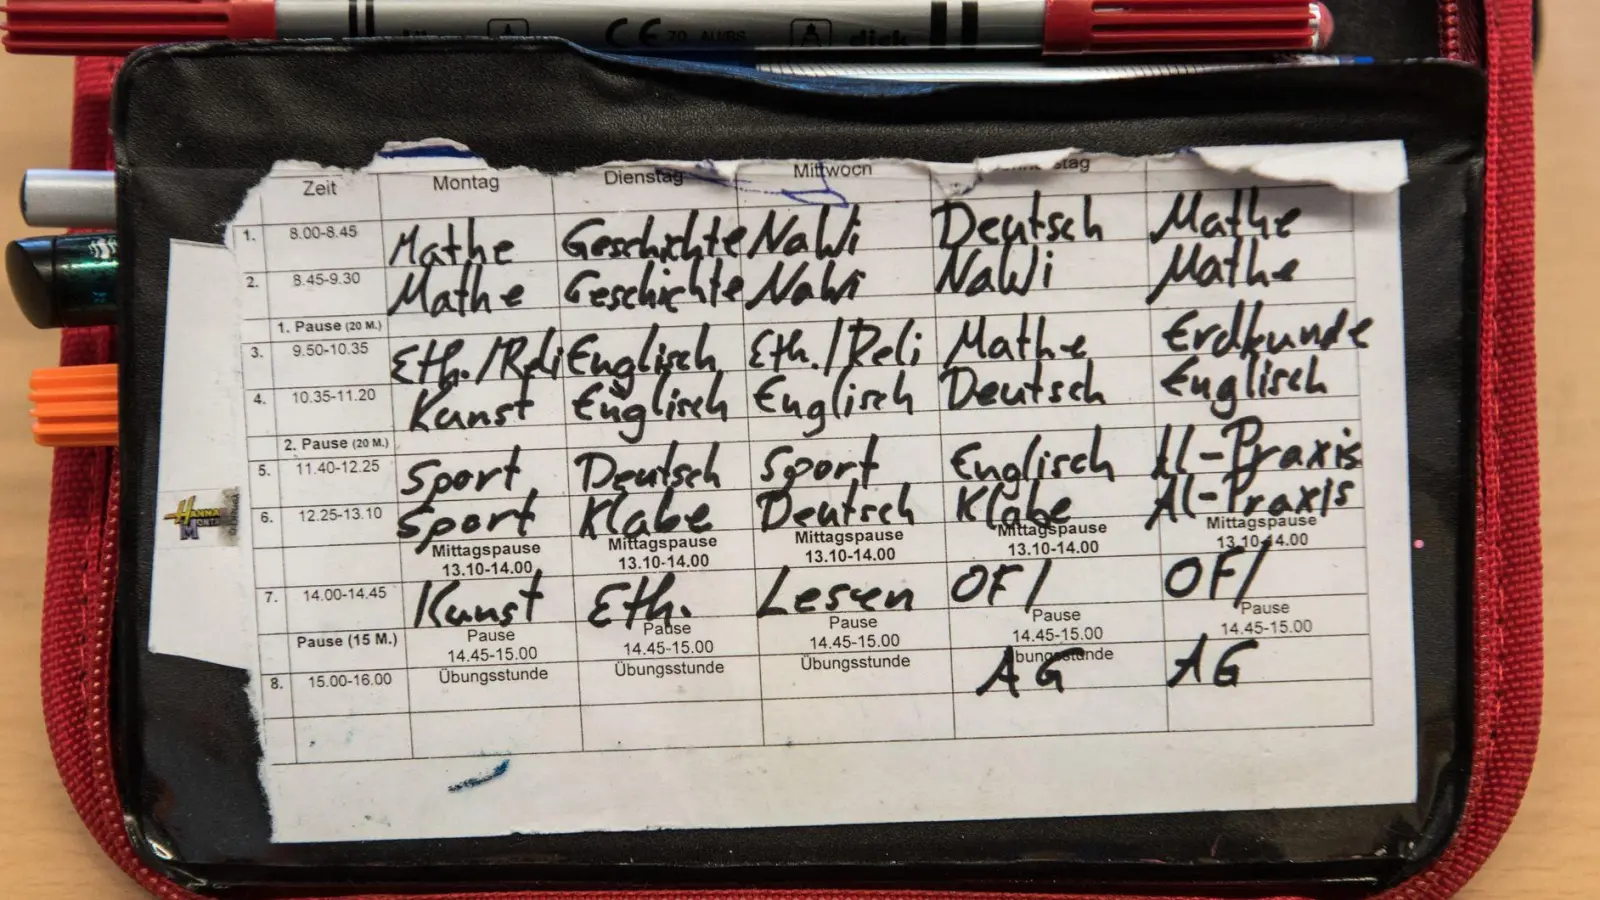 CE 70 AU/BS dick
Zeit Montag Dienstag Mittwoch
1. 8.00-8.45 Mathe Geschichte NaWi Deutsch Mathe
2. 8.45-9.30 Mathe Geschichte NaWi NaWi Mathe
1. Pause (20 M.)
3. 9.50-10.35 Eth./Reli Englisch Eth./Reli Mathe Erdkunde
4. 10.35-11.20 Kunst Englisch Englisch Deutsch Englisch
2. Pause (20 M.)
5. 11.40-12.25 Sport Deutsch Sport Englisch Al-Praxis
6. 12.25-13.10 Sport Klabe Deutsch Klabe Al-Praxis
Mittagspause Mittagspause Mittagspause Mittagspause Mittagspause
13.10-14.00 13.10-14.00 13.10-14.00 13.10-14.00 13.10-14.00
7. 14.00-14.45 Kunst Eth. Lesen OF/ OF/
Pause (15 M.) Pause Pause Pause Pause Pause
14.45-15.00 14.45-15.00 14.45-15.00 14.45-15.00 14.45-15.00
8. 15.00-16.00 Übungsstunde Übungsstunde Übungsstunde Übungsstunde AG AG
HANNA